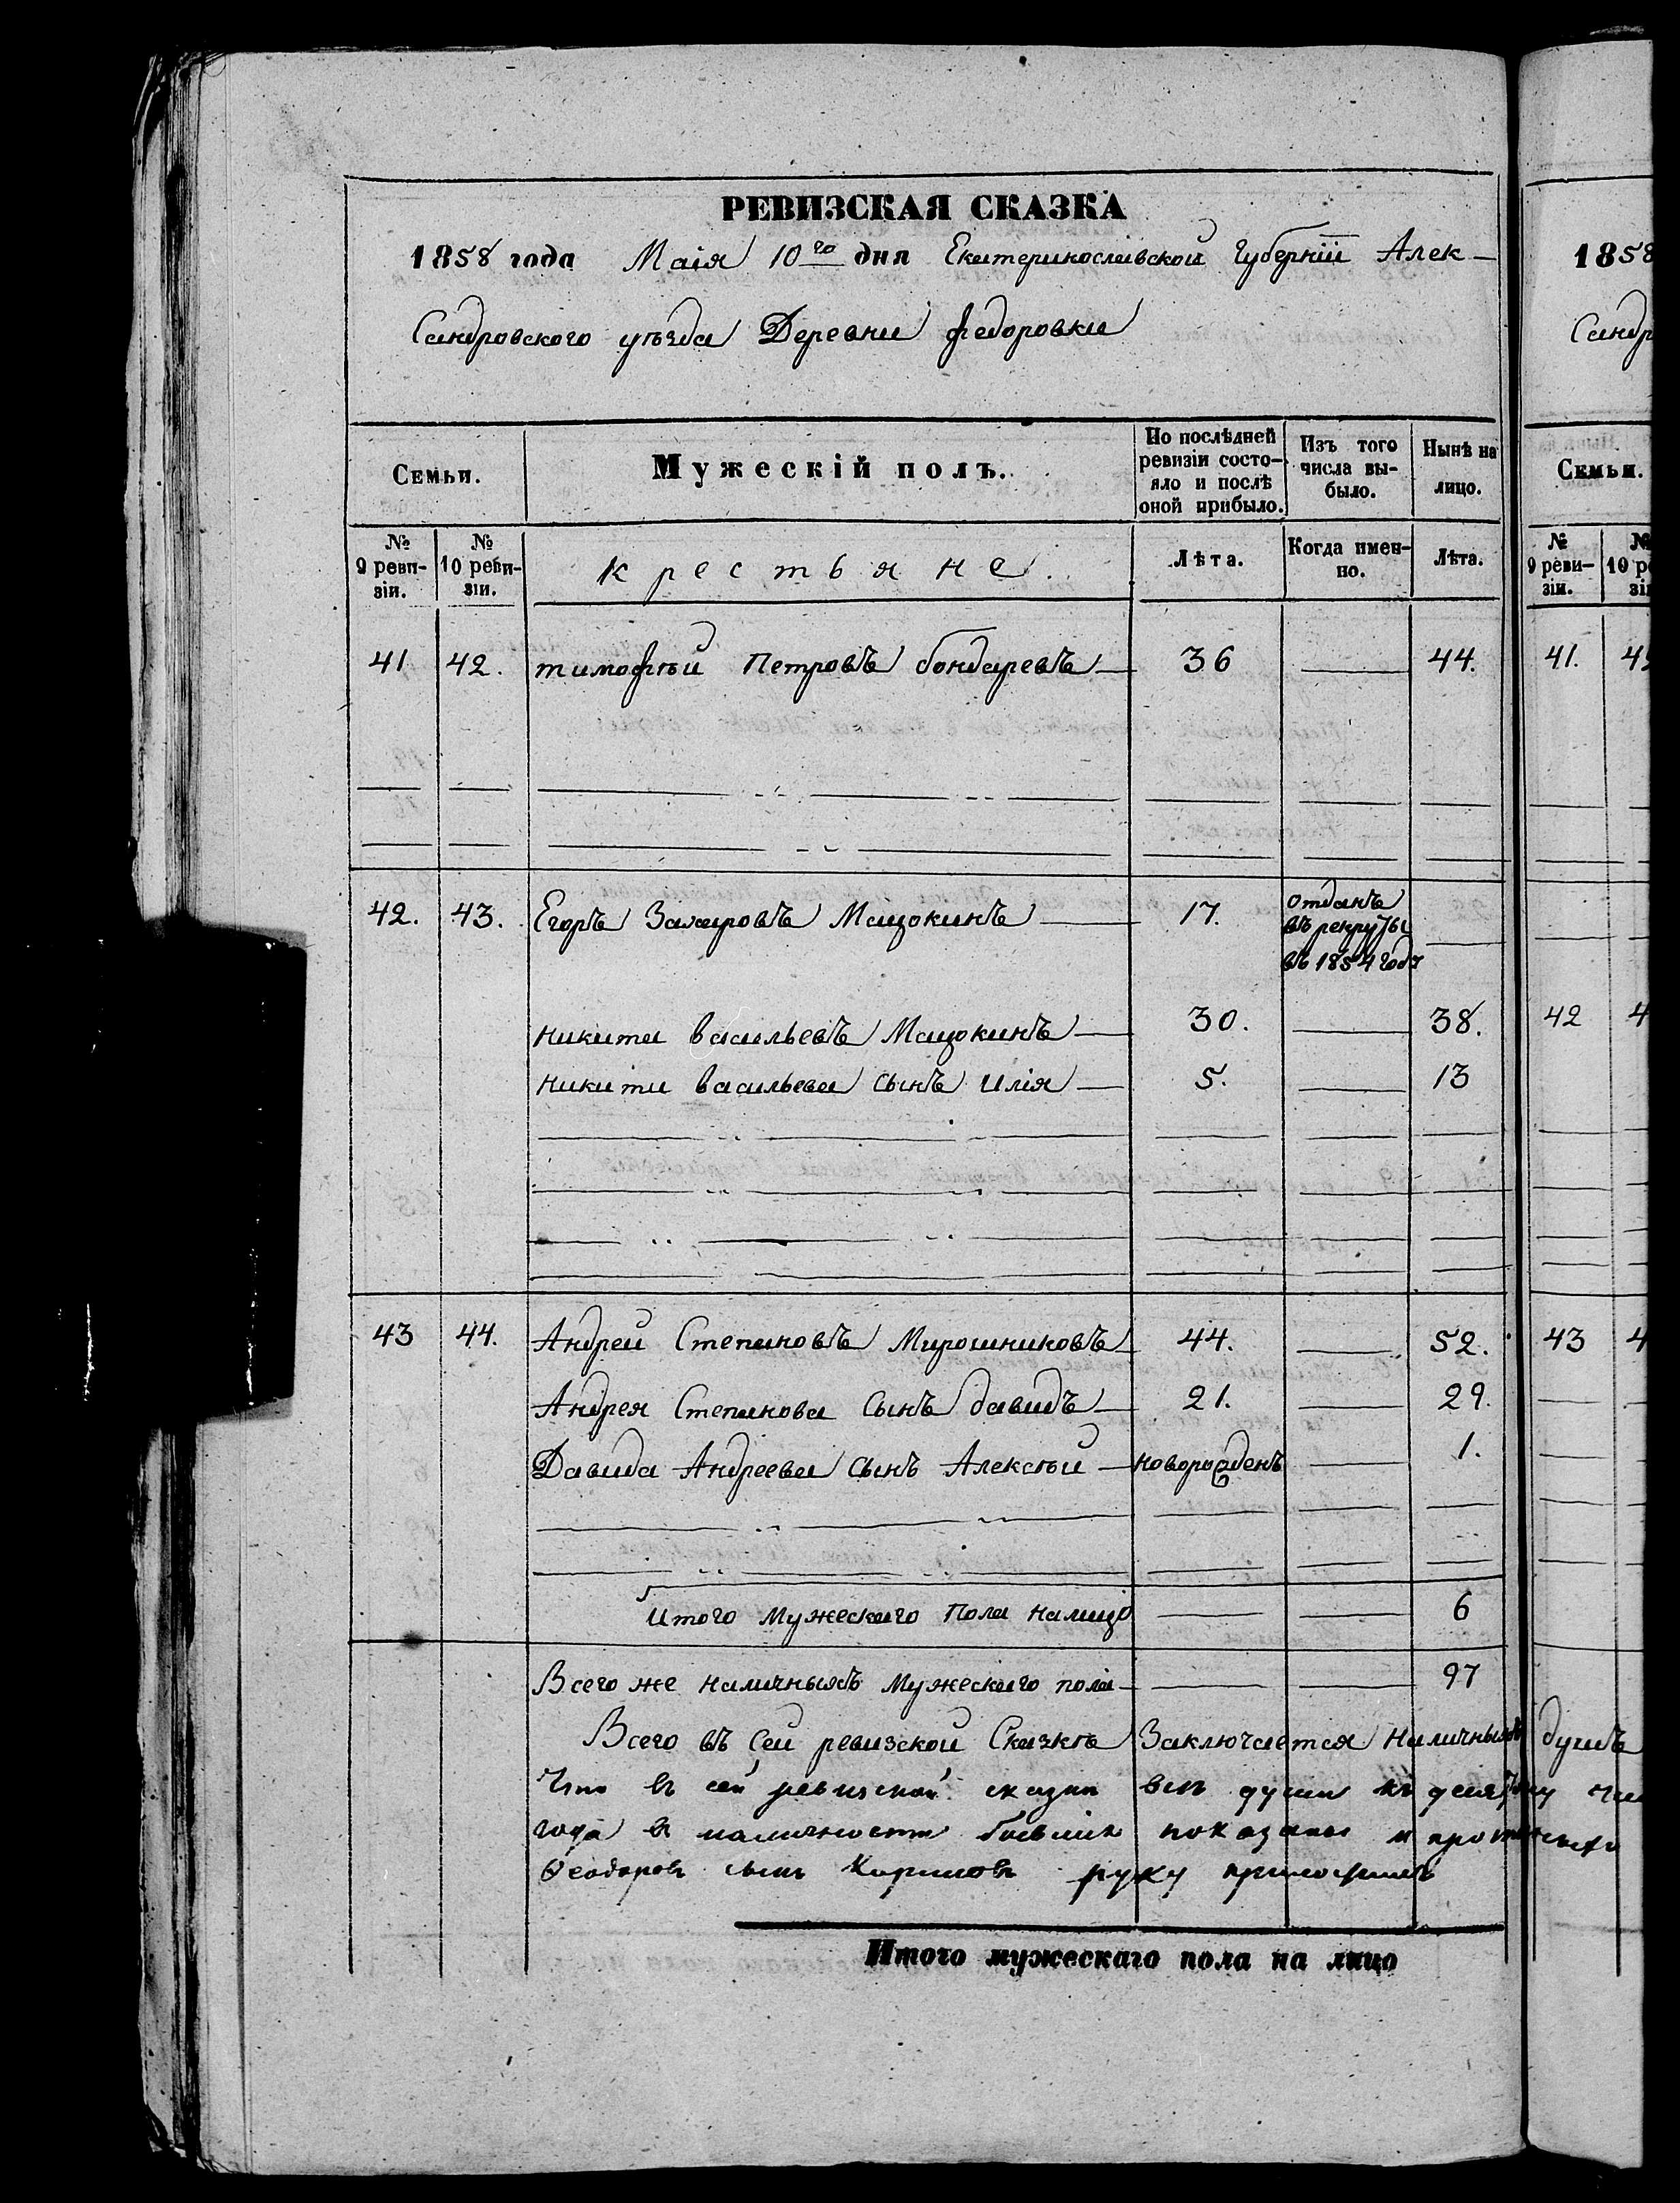 РЕВИЗСКАЯ СКАЗКА
1858 года Маія 10го дня Екатеринославской Губерніи Алек-
сандровского уѣзда Деревни Федоровки
Семьи.
Мужескій полъ.
По послѣдней ревизіи состо-яло и послѣ оной прибыло.
Изъ того числа вы-было.
Нынѣ на лицо.
№ 9 реви-зіи.
№ 10 реви-зіи.
крестьяне.
Лѣта.
Когда имен-но.
Лѣта.
41 42. тимофѣй Петровъ бондаревъ — 36 — 44.
42. 43. Егоръ Захаровъ Мацокинъ — 17. отданъ въ рекруты въ 1854 году —
никита васильевъ Мацокинъ — 30. — 38.
никиты васильева сынъ илія — 5. — 13
43 44. Андрей Степановъ Мирошниковъ — 44. — 52.
Андрея Степанова сынъ давидъ — 21. — 29.
Давида Андреева сынъ Алексѣй — новорожденъ — 1.
итого мужескаго пола налицо — — 6
Всего же наличныхъ мужескаго пола — — — 97
Всего въ сей ревизской сказкѣ заключается наличныхъ душъ
Что въ сей ревизской сказки всѣ души къ десятому
года в наличности бывшія показаны и
Феодоровъ сынъ руку приложилъ
Итого мужескаго пола на лицо
1858
Сандр
Семьи.
№ 9 реви-зіи.
№ 10 ре зіи
41. 42
42 4
43 4